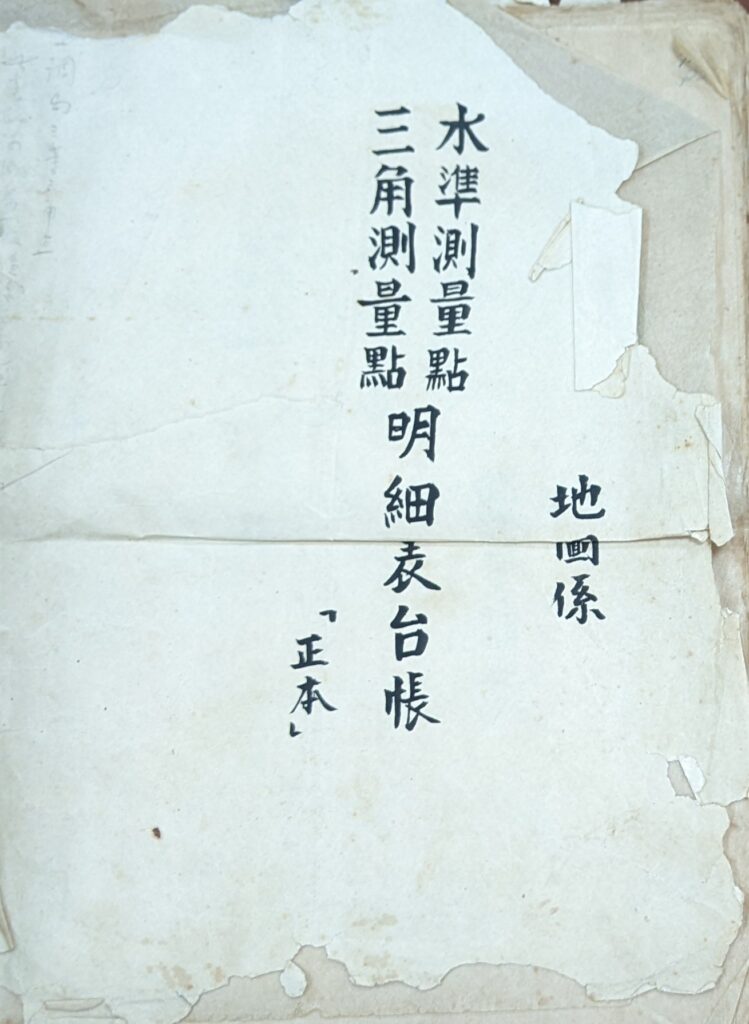 地圖係
水準測量點
三角測量點
明細表台帳
「正本」